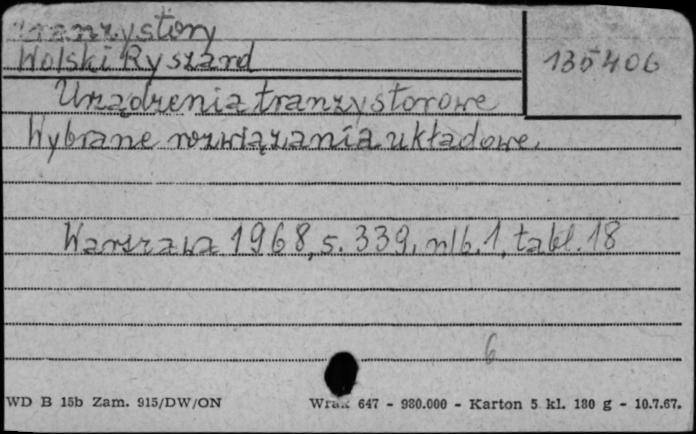 tranzystory
Wolski Ryszard
135406
Urządzenia tranzystorowe
Wybrane rozwiązania układowe.
Warszawa 1968, s. 339, nlb. 1, tabl. 18
6
WD B 15b Zam. 915/DW/ON
WrAk 647 - 980.000 - Karton 5 kl. 180 g - 10.7.67.